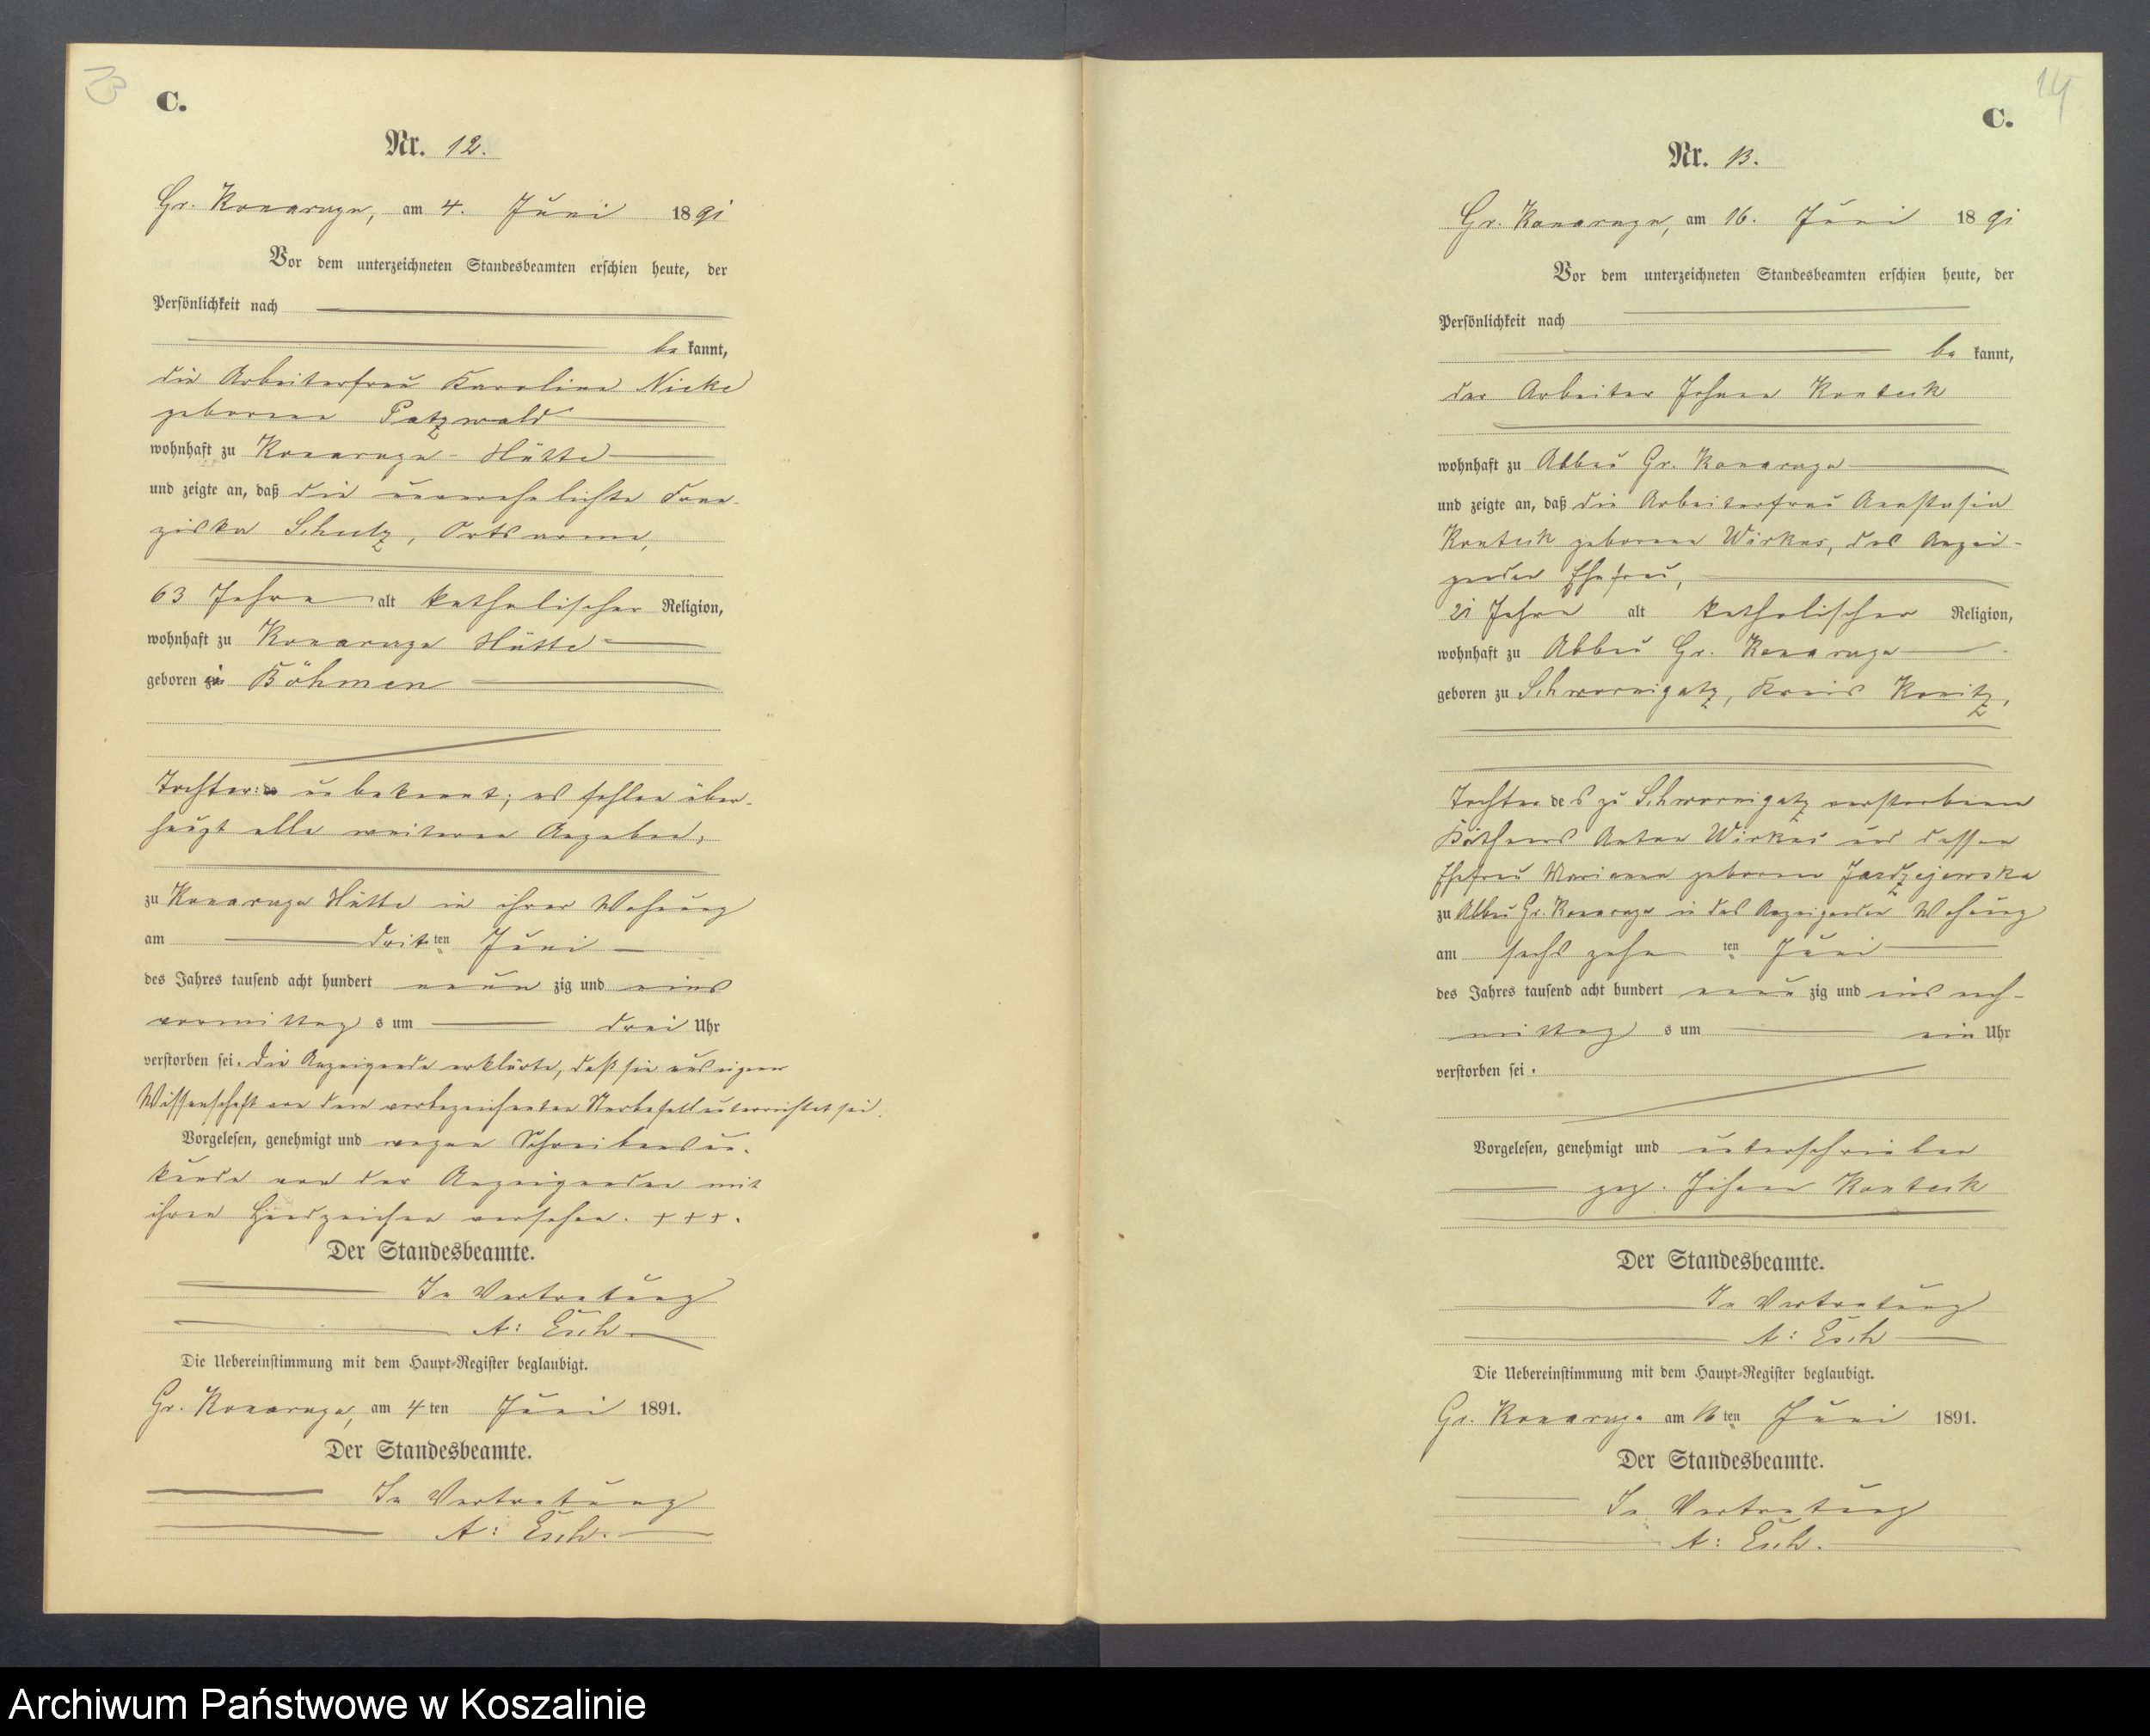 C.
Nr. 12.
Gr. Konarczyn, am 4. Juni 1891
Vor dem unterzeichneten Standesbeamten erschien heute, der
Persönlichkeit nach
be kannt,
die Arbeiterfrau Karoline Nicke
geborene Patzwald
wohnhaft zu Hütte
und zeigte an, daß die unverehelichte Fran-
ziska Schulz, Ortsarme,
63 Jahre alt katholischer Religion,
wohnhaft zu Hütte
geboren in Böhmen
Tochter: unbekannt; es fehlen über-
haupt alle weiteren Angaben,
zu Hütte in ihrer Wohnung
am dritten Juni
des Jahres tausend acht hundert neun zig und eins
vormittag s um drei Uhr
verstorben sei. Die Anzeigende erklärte, daß sie aus eigener
Wissenschaft von dem vorbezeichneten Sterbefall unterrichtet sei.
Vorgelesen, genehmigt und wegen Schreibensun-
kunde von der Anzeigenden mit
ihren Handzeichen versehen. +++.
Der Standesbeamte.
In Vertretung
A: Esch
Die Uebereinstimmung mit dem Haupt-Register beglaubigt.
Gr. am 4ten Juni 1891.
Der Standesbeamte.
In Vertretung
A: Esch.
14
C.
Nr. 13.
Gr. am 16. Juni 1891
Vor dem unterzeichneten Standesbeamten erschien heute, der
Persönlichkeit nach
be kannt,
der Arbeiter Johann
wohnhaft zu Abbau Gr.
und zeigte an, daß die Arbeiterfrau Anastasia
geborene Wirkus, des Anzei-
genden Ehefrau,
21 Jahre alt katholischer Religion,
wohnhaft zu Abbau Gr.
geboren zu Schwornigatz, Kreis Konitz,
Tochter des zu Schwornigatz verstorbenen
Käthners Anton Wirkus und dessen
Ehefrau Marianna geborene
zu Abbau Gr. in des Anzeigenden Wohnung
am sechszehn ten Juni
des Jahres tausend acht hundert neun zig und eins nach-
mittag s um ein Uhr
verstorben sei.
Vorgelesen, genehmigt und unterschrieben
gez. Johann
Der Standesbeamte.
In Vertretung
A: Esch
Die Uebereinstimmung mit dem Haupt-Register beglaubigt.
Gr. am 16ten Juni 1891.
Der Standesbeamte.
In Vertretung
A: Esch.
Archiwum Państwowe w Koszalinie